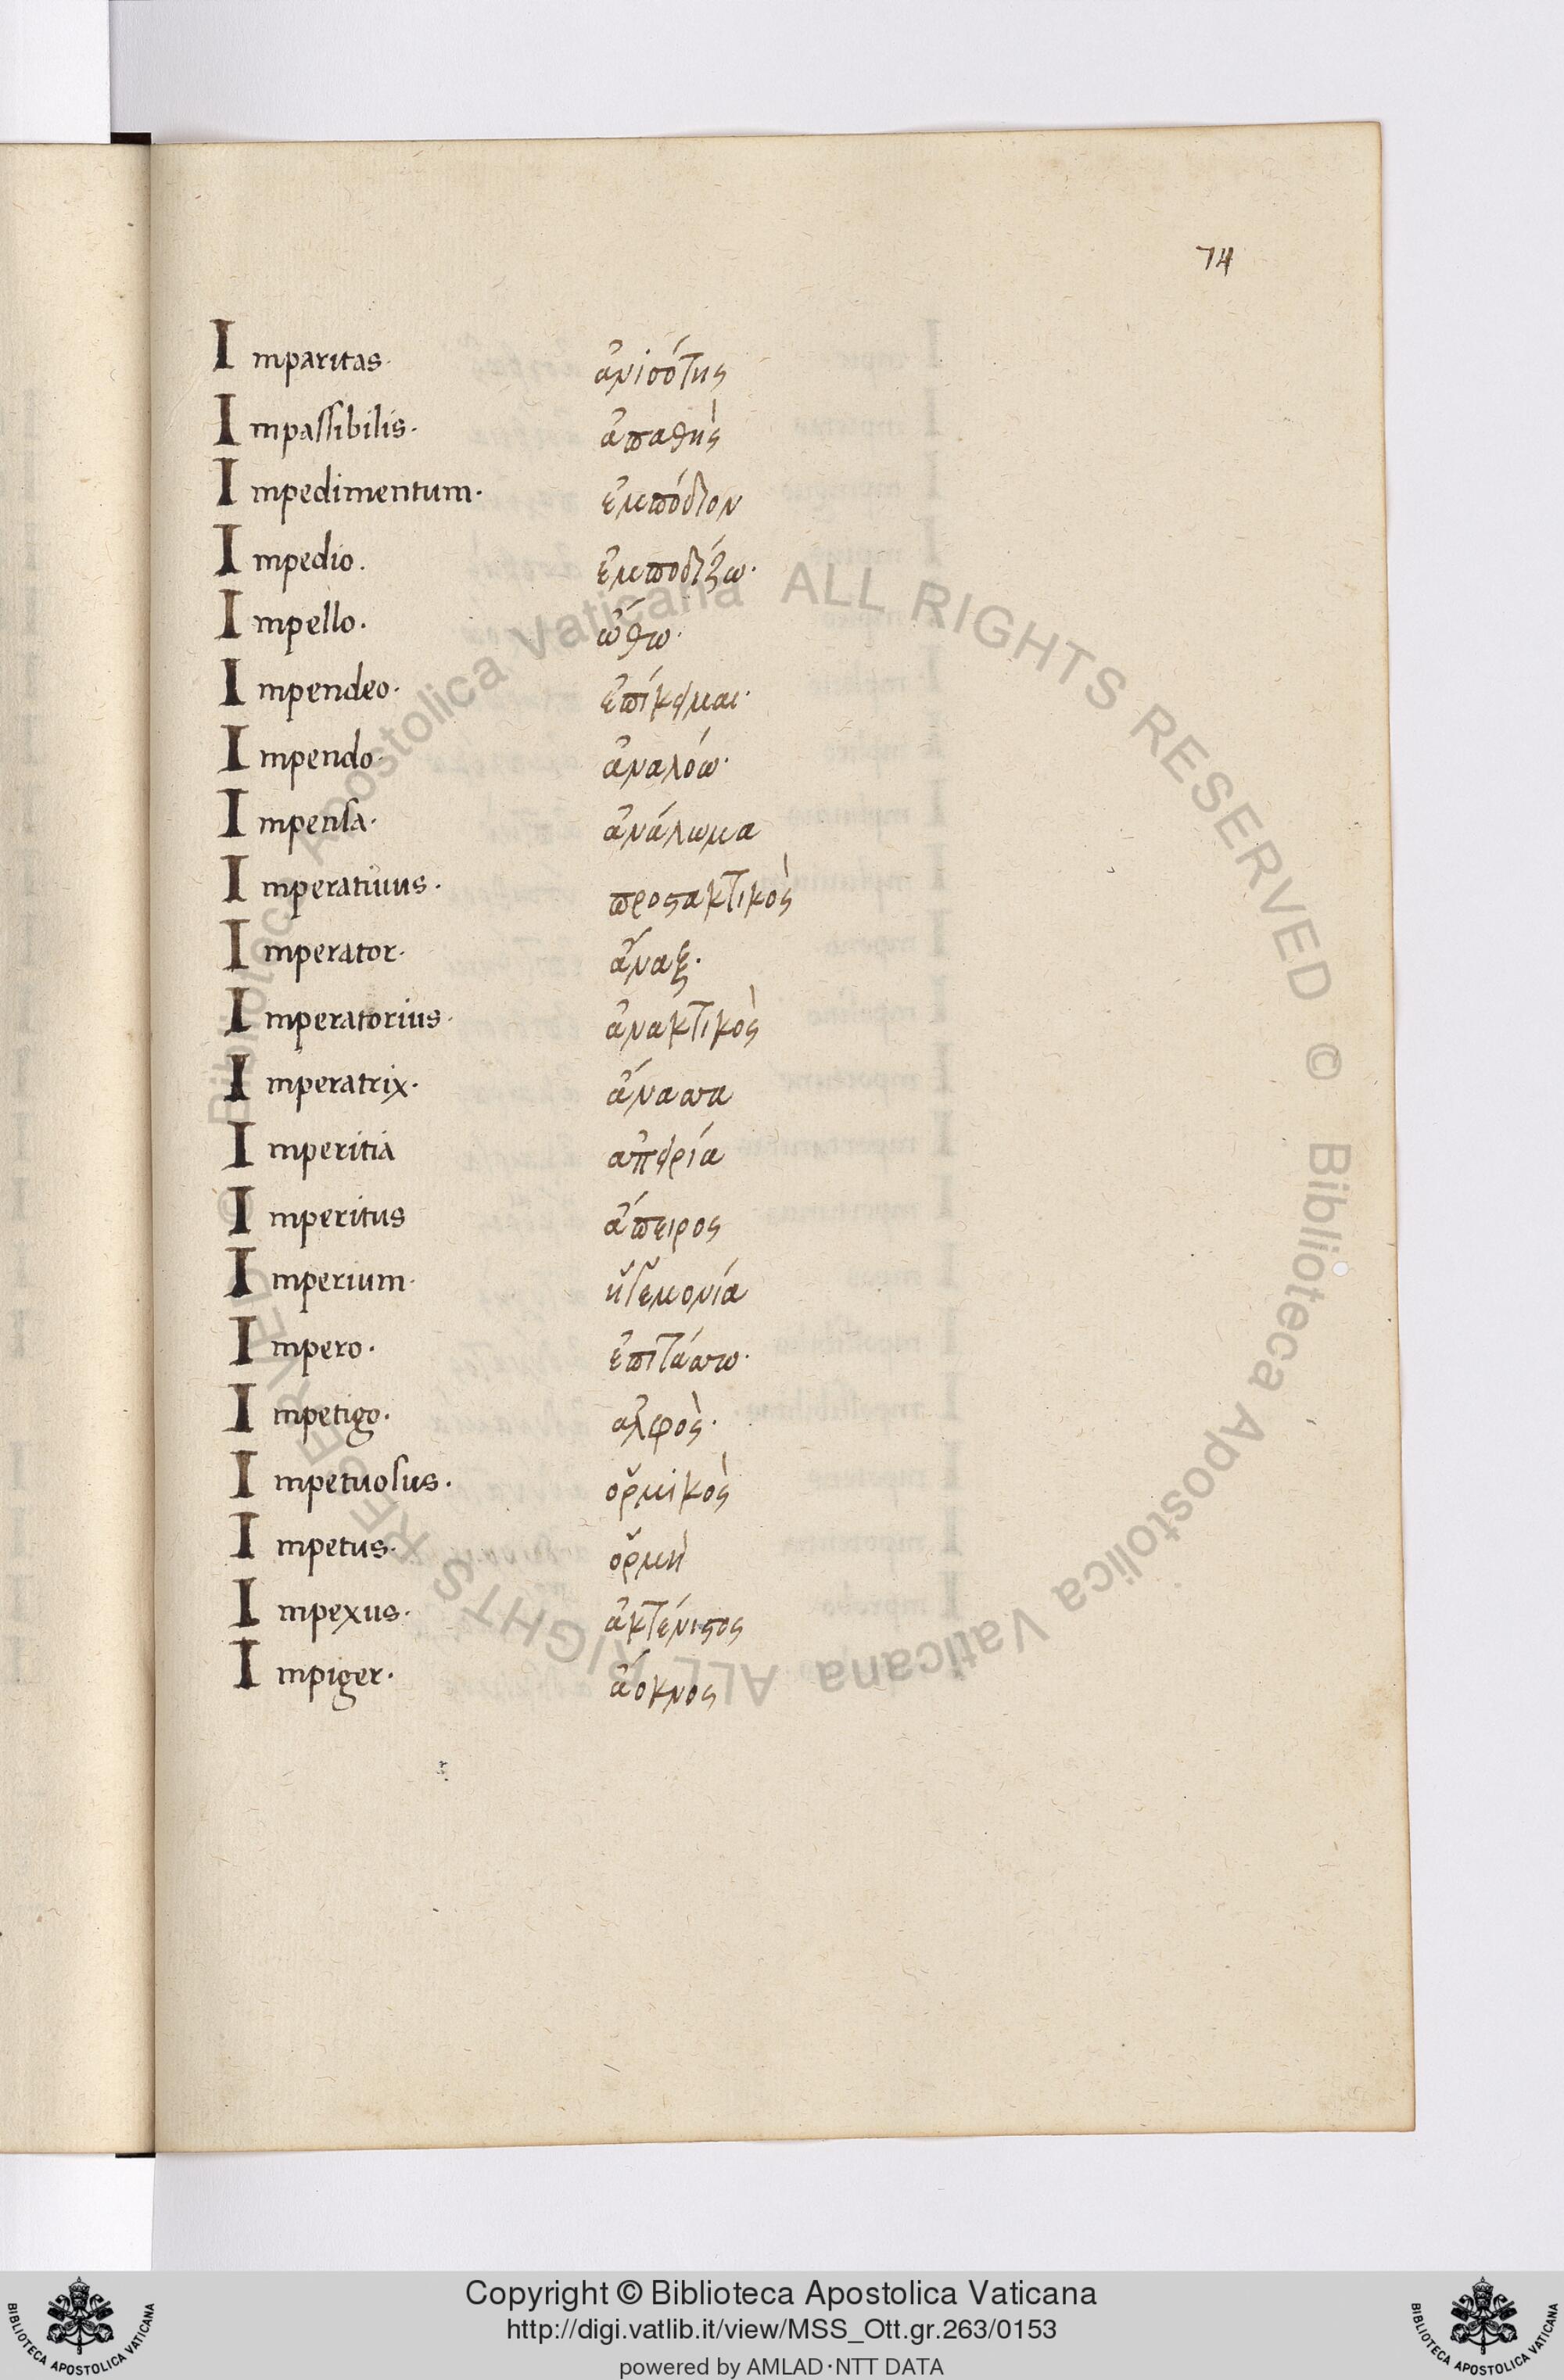 74
Imparitas· ἀνισότης
Impassibilis· ἀπαθὴς
Impedimentum· ἐμπόδιον
Impedio. ἐμποδίζω·
Impello. ὤθω·
Impendeo· ἐπίκειμαι·
Impendo· ἀναλόω·
Impensa· ἀνάλωμα
Imperatiuus· προστακτικὸς
Imperator· ἄναξ·
Imperatorius· ἀνακτικὸς
Imperatrix· ἄνασσα
Imperitia ἀπειρία
Imperitus ἄπειρος
Imperium· ἡγεμονία
Impero· ἐπιτάσσω·
Impetigo· ἀλφὸς·
Impetuosus· ὁρμικὸς
Impetus· ὁρμὴ
Impexus· ἀκτένιστος
Impiger· ἄοκνος
© Biblioteca Apostolica Vaticana ALL RIGHTS RESERVED
© Biblioteca Apostolica Vaticana ALL RIGHTS RESERVED
Copyright © Biblioteca Apostolica Vaticana
http://digi.vatlib.it/view/MSS_Ott.gr.263/0153
powered by AMLAD·NTT DATA
BIBLIOTECA APOSTOLICA VATICANA
BIBLIOTECA APOSTOLICA VATICANA